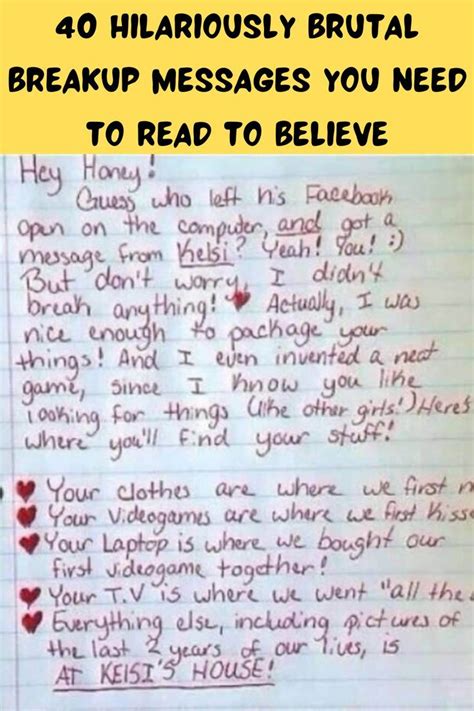 40 HILARIOUSLY BRUTAL
BREAKUP MESSAGES YOU NEED
TO READ TO BELIEVE
Hey Honey!
Guess who left his Facebook
open on the computer, and got a
message from Kelsi? Yeah! You! :)
But don't worry, I didn't
break anything! ♥ Actually, I was
nice enough to package your
things! And I even invented a neat
game, since I know you like
looking for things (like other girls!) Here's
where you'll find your stuff!
♥ Your clothes are where we first
♥ Your Videogames are where we first Kisse
♥ Your Laptop is where we bought our
first videogame together!
♥ Your T.V is where we went "all the
♥ Everything else, including pictures of
the last 2 years of our lives, is
AT KEISI'S HOUSE!